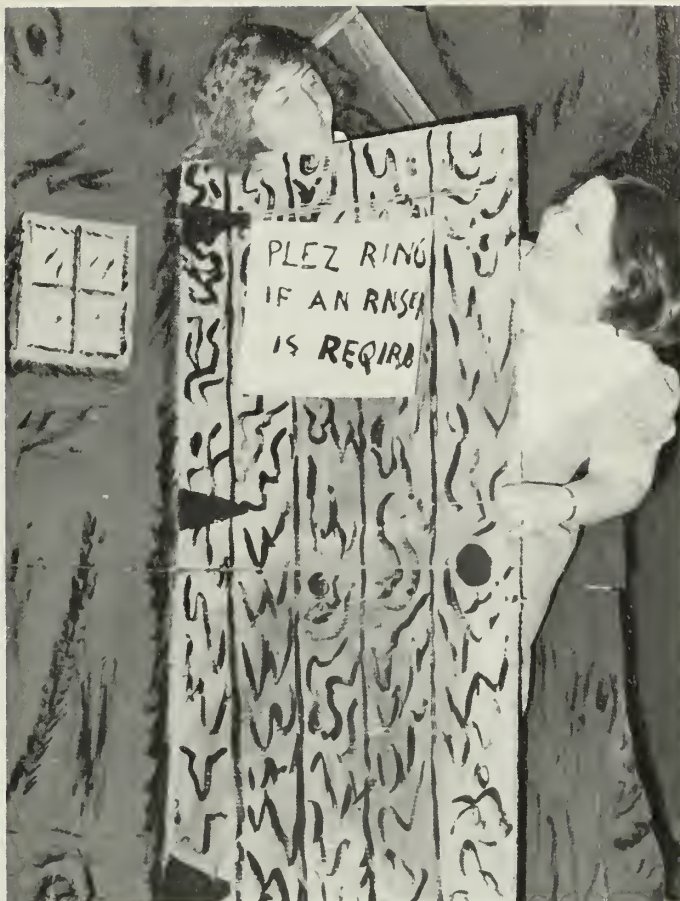 PLEZ RING
IF AN RNSER
IS REQIRD